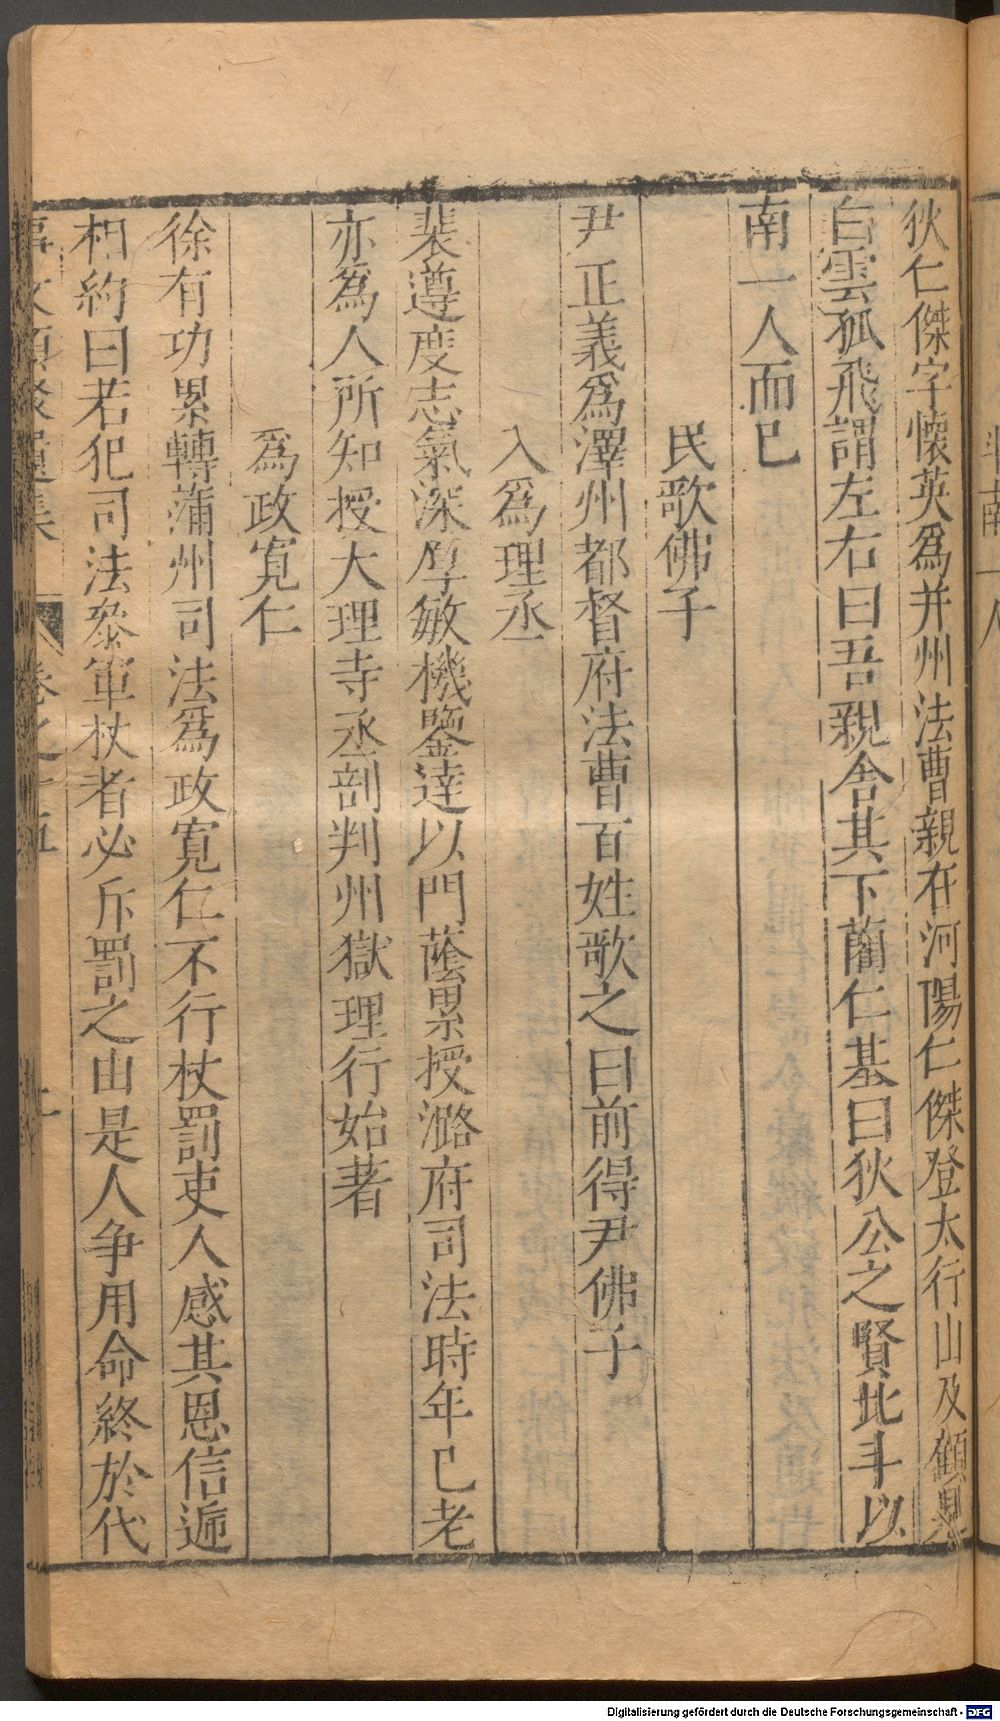 狄仁傑字懷英爲并州法曹親在河陽仁傑登太行山及顧見
白雲孤飛謂左右曰吾親舍其下藺仁基曰狄公之賢北斗以
南一人而已
民歌佛子
尹正義爲澤州都督府法曹百姓歌之曰前得尹佛子
入爲理丞
裴遵度志氣深厚敏機鑒達以門蔭累授潞府司法時年已老
亦爲人所知授大理寺丞剖判州獄理行始著
爲政寬仁
徐有功累轉蒲州司法爲政寬仁不行杖罰吏人感其恩信遞
相約曰若犯司法叅軍杖者必斥罰之由是人争用命終於代
事文類聚遺集
卷之十五
Digitalisierung gefördert durch die Deutsche Forschungsgemeinschaft - DFG